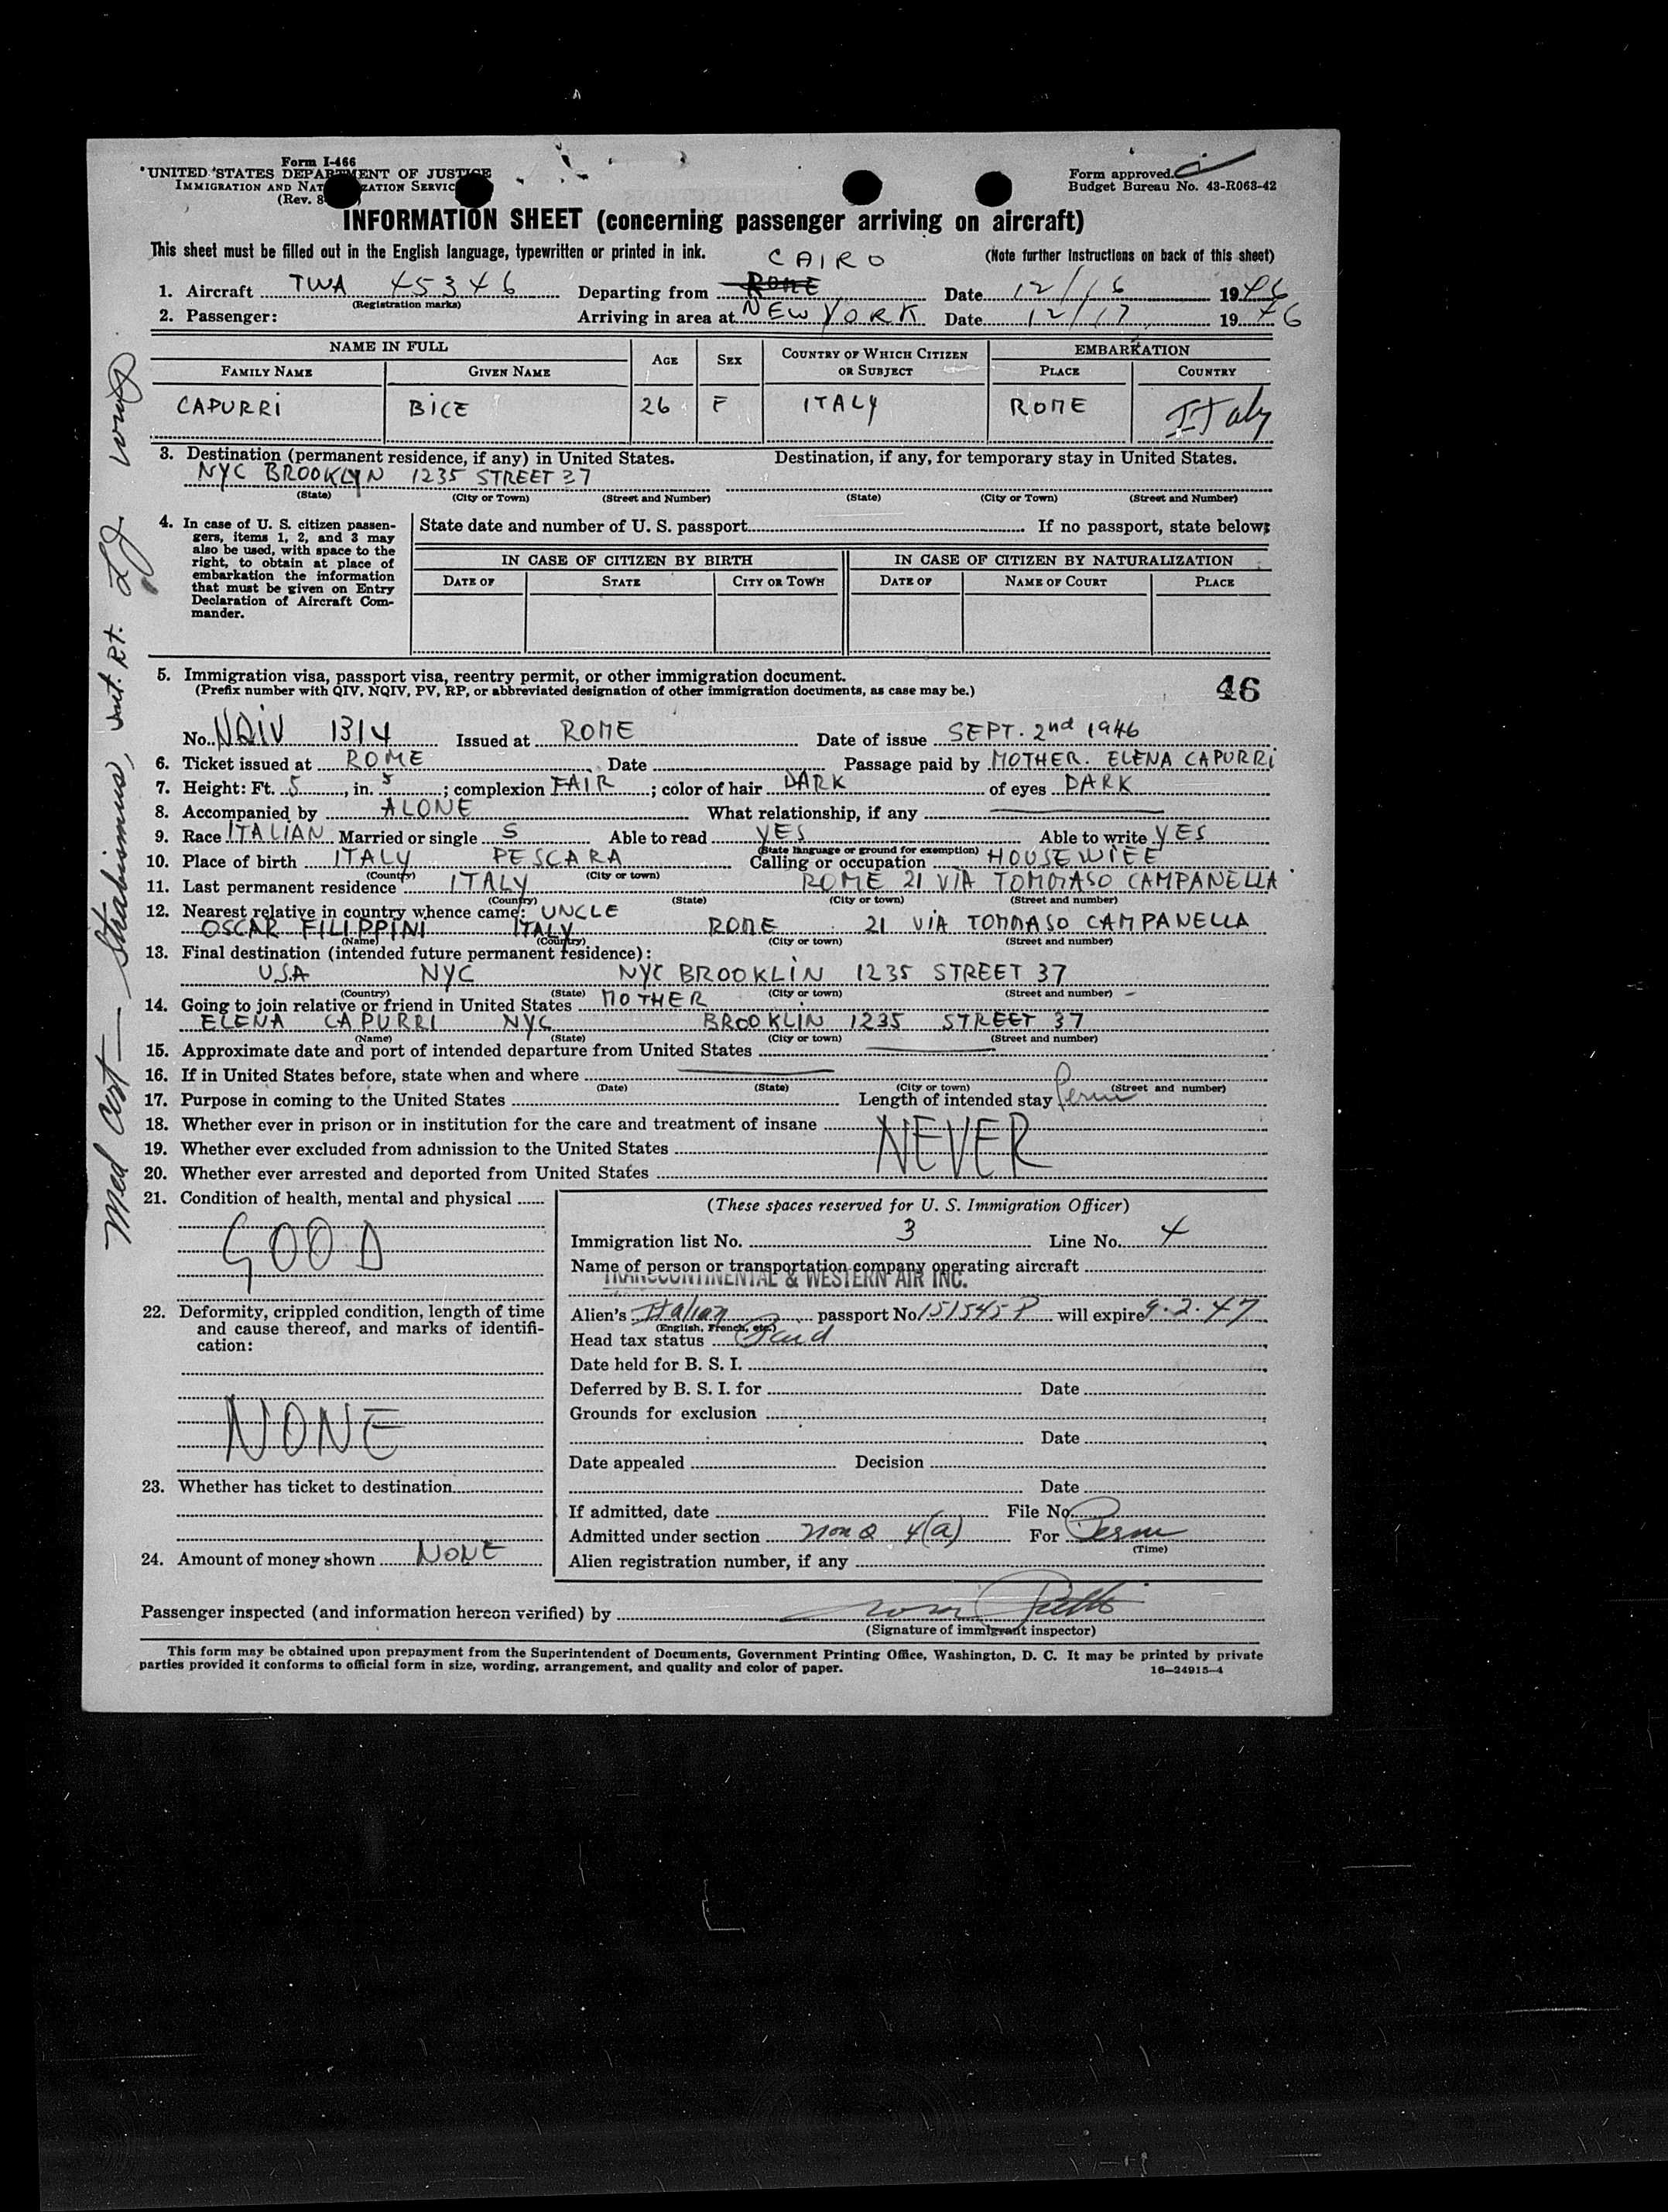 Form I-466
UNITED STATES DEPARTMENT OF JUSTICE
IMMIGRATION AND NAT ZATION SERVIC
(Rev. 8-
Form approved.
Budget Bureau No. 43-R063-42
INFORMATION SHEET (concerning passenger arriving on aircraft)
This sheet must be filled out in the English language, typewritten or printed in ink.
(Note further instructions on back of this sheet)
CAIRO
1. Aircraft TWA 45346 Departing from ROME Date 12/16 1946
(Registration marks)
2. Passenger: Arriving in area at NEW YORK Date 12/17 1946
NAME IN FULL AGE SEX COUNTRY OF WHICH CITIZEN OR SUBJECT EMBARKATION
FAMILY NAME GIVEN NAME PLACE COUNTRY
CAPURRI BICE 26 F ITALY ROME Italy
3. Destination (permanent residence, if any) in United States. Destination, if any, for temporary stay in United States.
NYC BROOKLYN 1235 STREET 37
(State) (City or Town) (Street and Number) (State) (City or Town) (Street and Number)
4. In case of U. S. citizen passen-
gers, items 1, 2, and 3 may
also be used, with space to the
right, to obtain at place of
embarkation the information
that must be given on Entry
Declaration of Aircraft Com-
mander.
State date and number of U. S. passport If no passport, state below:
IN CASE OF CITIZEN BY BIRTH IN CASE OF CITIZEN BY NATURALIZATION
DATE OF STATE CITY OR TOWN DATE OF NAME OF COURT PLACE
5. Immigration visa, passport visa, reentry permit, or other immigration document.
(Prefix number with QIV, NQIV, PV, RP, or abbreviated designation of other immigration documents, as case may be.)
46
No. NQIV 1314 Issued at ROME Date of issue SEPT. 2nd 1946
6. Ticket issued at ROME Date Passage paid by MOTHER. ELENA CAPURRI
7. Height: Ft. 5, in. 5; complexion FAIR; color of hair DARK of eyes DARK
8. Accompanied by ALONE What relationship, if any
9. Race ITALIAN Married or single S Able to read YES Able to write YES
(State language or ground for exemption)
10. Place of birth ITALY PESCARA Calling or occupation HOUSEWIFE
(Country) (City or town)
11. Last permanent residence ITALY ROME 21 VIA TOMMASO CAMPANELLA
(Country) (State) (City or town) (Street and number)
12. Nearest relative in country whence came: UNCLE
OSCAR FILIPPINI ITALY ROME 21 VIA TOMMASO CAMPANELLA
(Name) (Country) (City or town) (Street and number)
13. Final destination (intended future permanent residence):
U.S.A NYC NYC BROOKLIN 1235 STREET 37
(Country) (State) (City or town) (Street and number)
14. Going to join relative or friend in United States MOTHER
ELENA CAPURRI NYC BROOKLIN 1235 STREET 37
(Name) (State) (City or town) (Street and number)
15. Approximate date and port of intended departure from United States
16. If in United States before, state when and where
(Date) (State) (City or town) (Street and number)
17. Purpose in coming to the United States Length of intended stay Perm
18. Whether ever in prison or in institution for the care and treatment of insane
19. Whether ever excluded from admission to the United States NEVER
20. Whether ever arrested and deported from United States
21. Condition of health, mental and physical
GOOD
22. Deformity, crippled condition, length of time
and cause thereof, and marks of identifi-
cation:
NONE
23. Whether has ticket to destination
24. Amount of money shown NONE
(These spaces reserved for U. S. Immigration Officer)
Immigration list No. 3 Line No. 4
Name of person or transportation company operating aircraft
TRANSCONTINENTAL & WESTERN AIR INC.
Alien's Italian passport No. 151545 P will expire 9.2.47
(English, French, etc.)
Head tax status Paid
Date held for B. S. I.
Deferred by B. S. I. for Date
Grounds for exclusion
Date
Date appealed Decision
Date
If admitted, date File No.
Admitted under section Non Q 4(a) For Perm
(Time)
Alien registration number, if any
Passenger inspected (and information hereon verified) by
(Signature of immigrant inspector)
This form may be obtained upon prepayment from the Superintendent of Documents, Government Printing Office, Washington, D. C. It may be printed by private
parties provided it conforms to official form in size, wording, arrangement, and quality and color of paper.
16—24915-4
Med Cert — Strabismus, int. Rt.